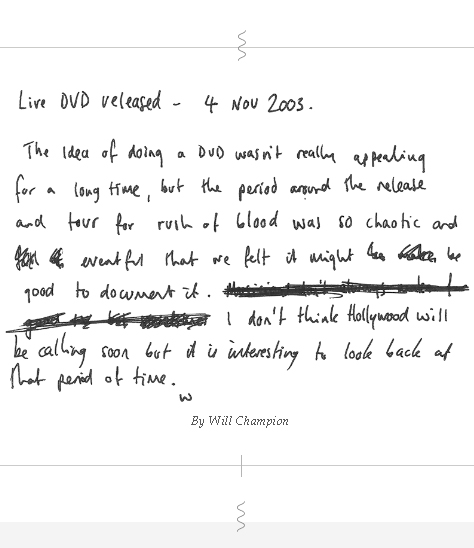 Live DVD released - 4 NOV 2003.
The Idea of doing a DVD wasn't really appealing
for a long time, but the period around the release
and tour for rush of blood was so chaotic and
eventful that we felt it might be
good to document it.
I don't think Hollywood will
be calling soon but it is interesting to look back at
that period of time.
w
By Will Champion